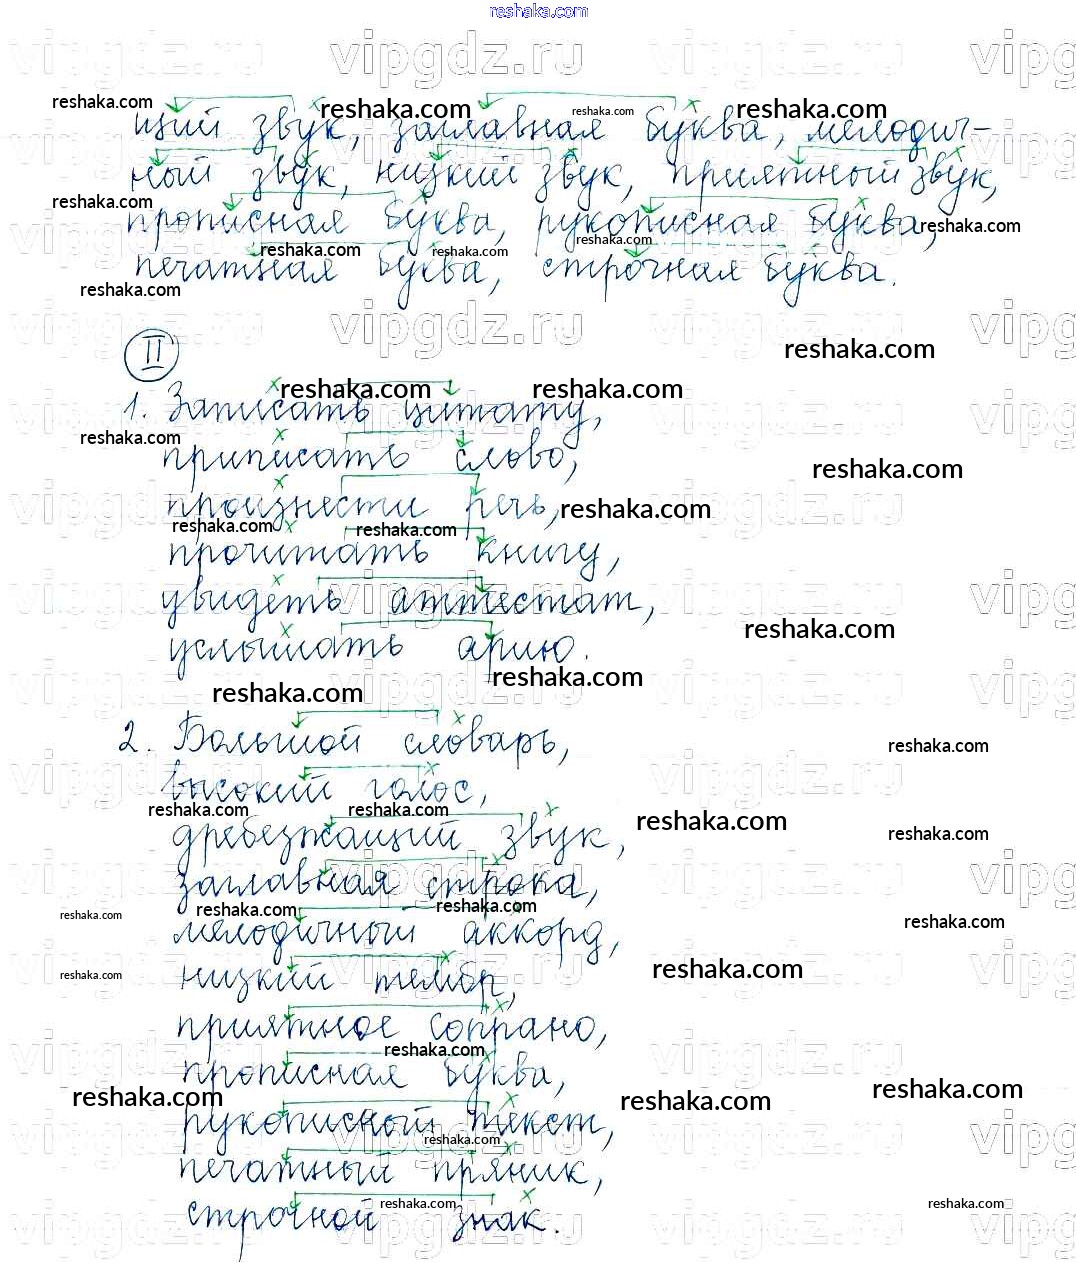 reshaka.com
щий звук, заглавная буква, мелодич-
ный звук, низкий звук, приятный звук,
прописная буква, рукописная буква,
печатная буква, строчная буква.
II
1. Записать цитату,
приписать слово,
произнести речь,
прочитать книгу,
увидеть аттестат,
услышать арию.
2. Большой словарь,
высокий голос,
дребезжащий звук,
заглавная строка,
мелодичный аккорд,
низкий тембр,
приятное сопрано,
прописная буква,
рукописный текст,
печатный пряник,
строчной знак.
vipgdz.ru
reshaka.com